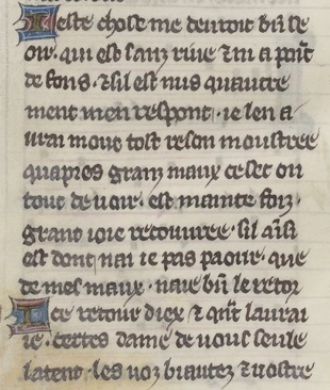 Ceste chose me deuroit bn̄ se
oir. qui est sanz riue ⁊ n a point
de fons. ⁊ sil est nus quautre
ment men respont. ie len a
urai mout tost reson moustree
quapres granz maux ce set on
tout de uoir. est mainte foiz.
grant ioie recouuree. sil ainsi
est dont nai ie pas paour. que
de mes maux. naie bn̄ le retor
Ice retour diex ⁊ qn̄t laurai
ie. certes dame de uous seule
latent. les uoz biautez ⁊ uostre